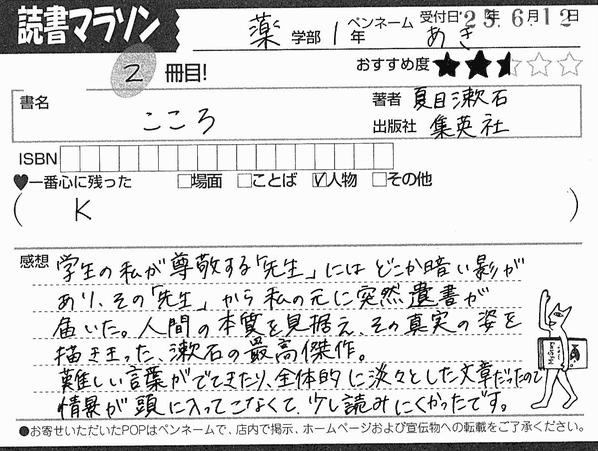 読書マラソン
薬学部 1年 ペンネーム あき 受付日 '23年6月12日
2冊目!
おすすめ度 ★★⯨☆☆
書名 こころ
著者 夏目漱石
出版社 集英社
ISBN
♥一番心に残った □場面 □ことば ☑人物 □その他
( K )
感想
学生の私が尊敬する「先生」にはどこか暗い影が
あり、その「先生」から私の元に突然遺書が
届いた。人間の本質を見据え、その真実の姿を
描ききった、漱石の最高傑作。
難しい言葉がでてきたり、全体的に淡々とした文章だったので
情景が頭に入ってこなくて、少し読みにくかったです。
●お寄せいただいたPOPはペンネームで、店内で掲示、ホームページおよび宣伝物への転載をご了承ください。